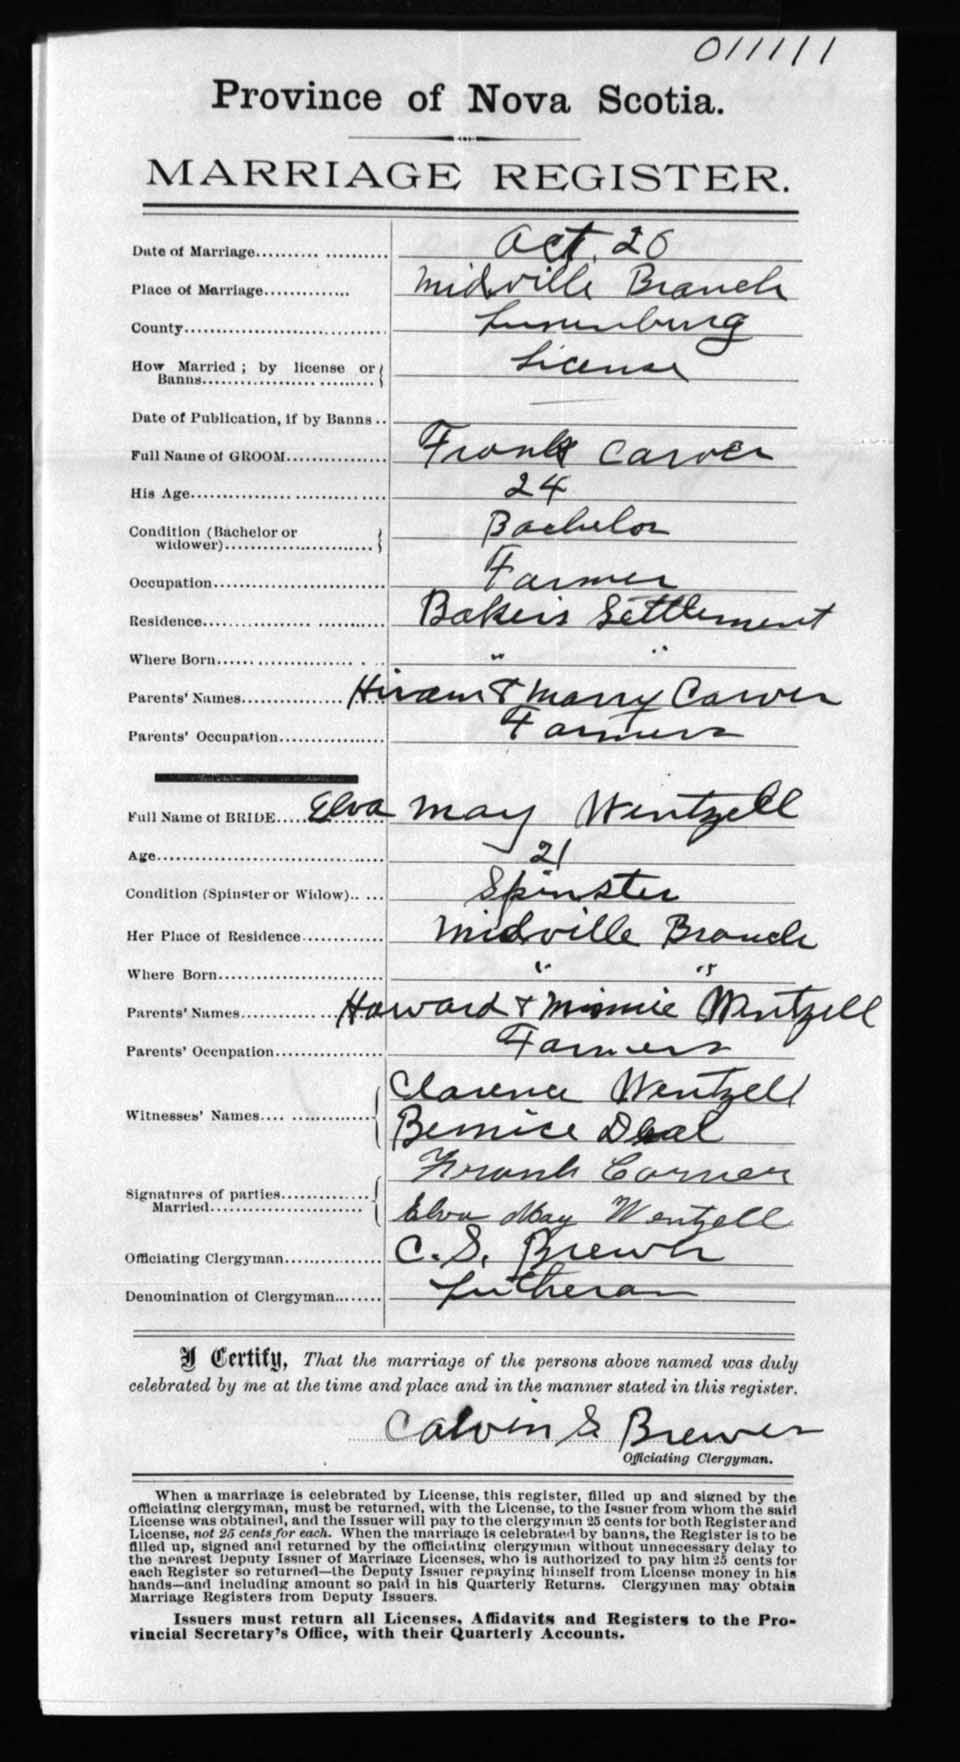 011111
Province of Nova Scotia.
MARRIAGE REGISTER.
Date of Marriage.......... Oct. 26
Place of Marriage.............. Midville Branch
County................................ Lunenburg
How Married ; by license or License
Banns................................
Date of Publication, if by Banns .. —
Full Name of GROOM................ Frank Carver
His Age................................ 24
Condition (Bachelor or Bachelor
widower)........................
Occupation............................ Farmer
Residence............................ Bakers Settlement
Where Born........................ " "
Parents' Names................ Hiram & Marry Carver
Parents' Occupation................ Farmers
Full Name of BRIDE..... Elva May Wentzell
Age................................ 21
Condition (Spinster or Widow)..... Spinster
Her Place of Residence............ Midville Branch
Where Born........................ " "
Parents' Names............ Howard & Minnie Wentzell
Parents' Occupation................ Farmers
Clarence Wentzell
Witnesses' Names................
Bernice Deal
Frank Carver
Signatures of parties..............
Married........................ Elva May Wentzell
Officiating Clergyman................ C. S. Brewer
Denomination of Clergyman........ Lutheran
I Certify, That the marriage of the persons above named was duly
celebrated by me at the time and place and in the manner stated in this register.
Calvin S. Brewer
Officiating Clergyman.
When a marriage is celebrated by License, this register, filled up and signed by the
officiating clergyman, must be returned, with the License, to the Issuer from whom the said
License was obtained, and the Issuer will pay to the clergyman 25 cents for both Register and
License, not 25 cents for each. When the marriage is celebrated by banns, the Register is to be
filled up, signed and returned by the officiating clergyman without unnecessary delay to
the nearest Deputy Issuer of Marriage Licenses, who is authorized to pay him 25 cents for
each Register so returned—the Deputy Issuer repaying himself from License money in his
hands—and including amount so paid in his Quarterly Returns. Clergymen may obtain
Marriage Registers from Deputy Issuers.
Issuers must return all Licenses, Affidavits and Registers to the Pro-
vincial Secretary's Office, with their Quarterly Accounts.